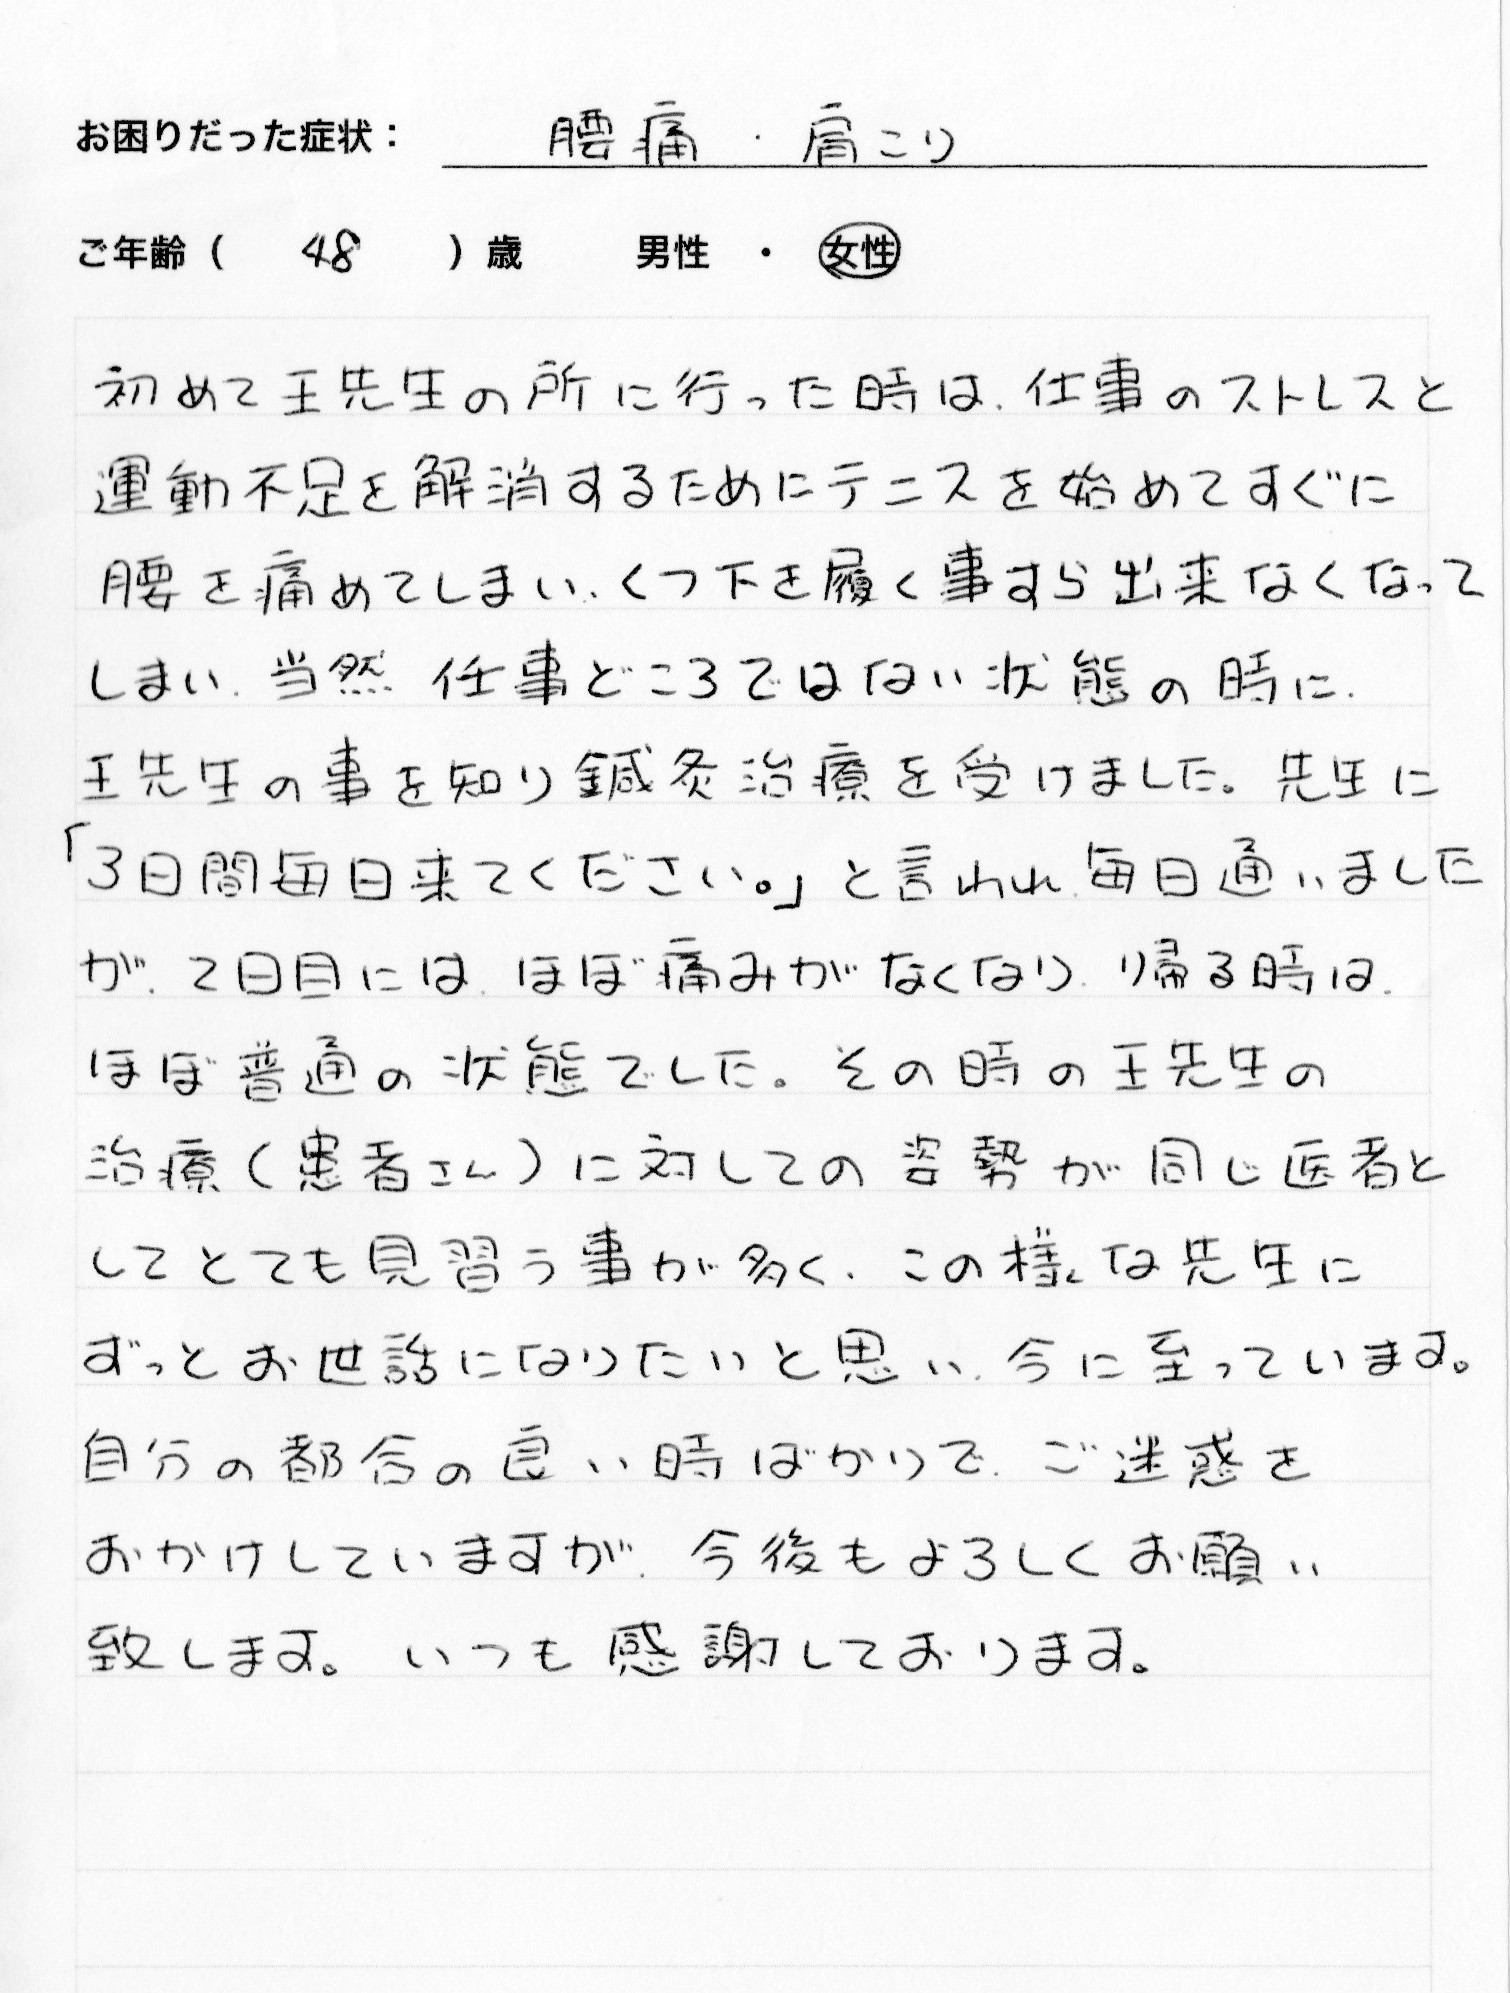 お困りだった症状： 腰痛・肩こり
ご年齢（ 48 ）歳 男性 ・ 女性
初めて王先生の所に行った時は、仕事のストレスと
運動不足を解消するためにテニスを始めてすぐに
腰を痛めてしまい、くつ下を履く事すら出来なくなって
しまい、当然 仕事どころではない状態の時に、
王先生の事を知り鍼灸治療を受けました。先生に
「3日間毎日来てください。」と言われ、毎日通いました
が、2日目には、ほぼ痛みがなくなり、帰る時は、
ほぼ普通の状態でした。その時の王先生の
治療（患者さん）に対しての姿勢が同じ医者と
してとても見習う事が多く、この様な先生に
ずっとお世話になりたいと思い、今に至っています。
自分の都合の良い時ばかりで、ご迷惑を
おかけしていますが、今後もよろしくお願い
致します。いつも感謝しております。